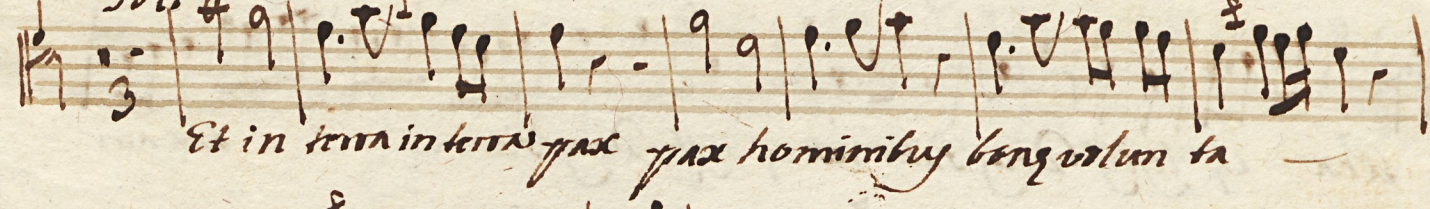 3
Et in terra in terra pax pax hominibus bonę volun ta